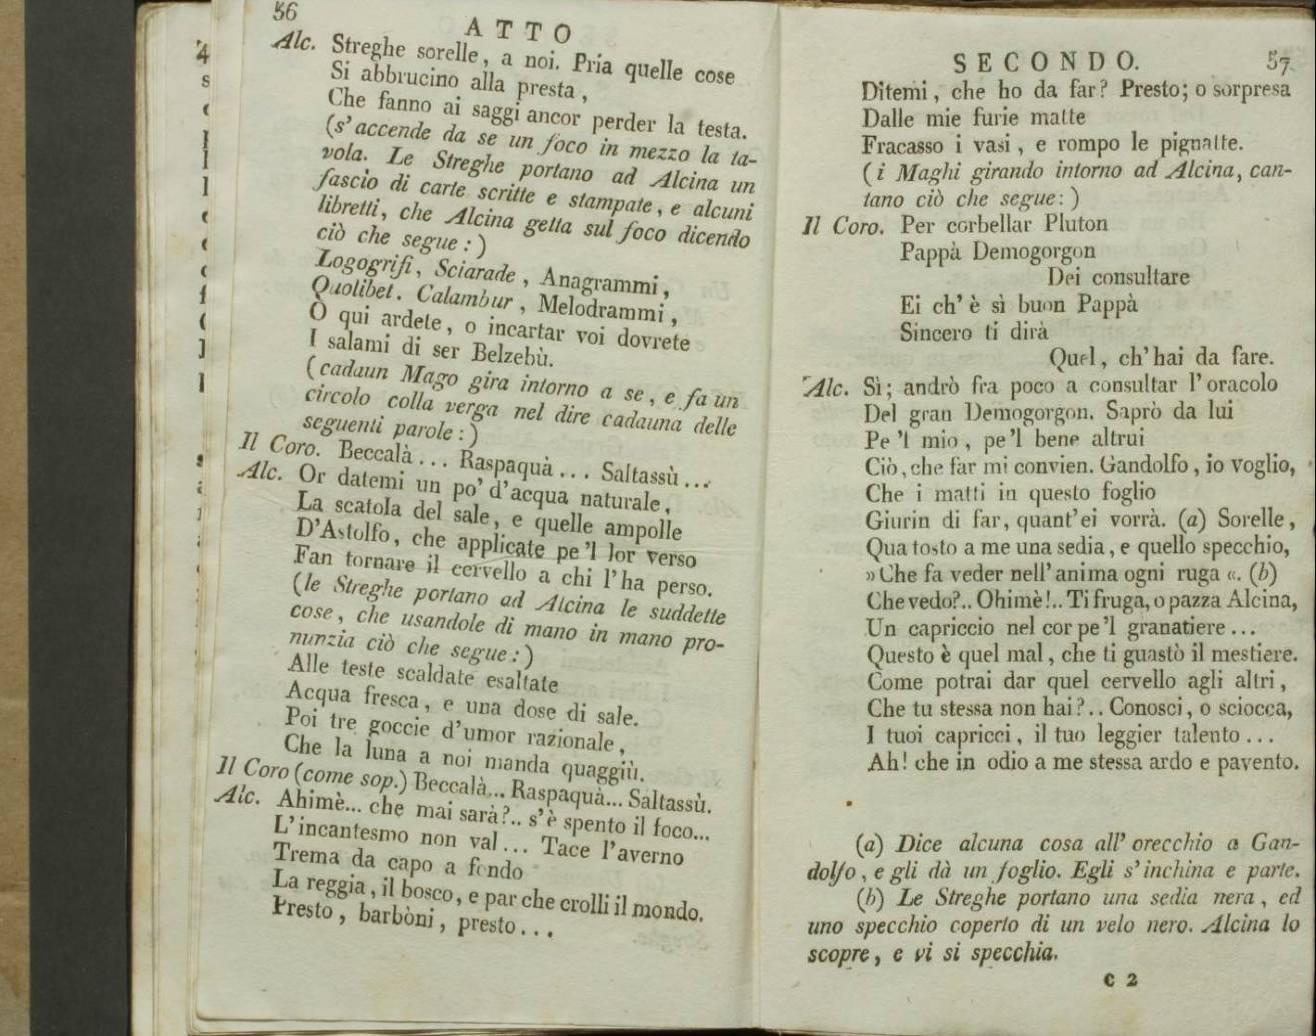 56
ATTO
Alc. Streghe sorelle, a noi. Pria quelle cose
Si abbrucino alla presta,
Che fanno ai saggi ancor perder la testa.
(s'accende da se un foco in mezzo la ta-
vola. Le Streghe portano ad Alcina un
fascio di carte scritte e stampate, e alcuni
libretti, che Alcina getta sul foco dicendo
ciò che segue:)
Logogrifi, Sciarade, Anagrammi,
Quolibet. Calambur, Melodrammi,
O qui ardete, o incartar voi dovrete
I salami di ser Belzebù.
(cadaun Mago gira intorno a se, e fa un
circolo colla verga nel dire cadauna delle
seguenti parole:)
Il Coro. Beccalà... Raspaquà... Saltassù...
Alc. Or datemi un po' d'acqua naturale,
La scatola del sale, e quelle ampolle
D'Astolfo, che applicate pe'l lor verso
Fan tornare il cervello a chi l'ha perso.
(le Streghe portano ad Alcina le suddette
cose, che usandole di mano in mano pro-
nunzia ciò che segue:)
Alle teste scaldate esaltate
Acqua fresca, e una dose di sale.
Poi tre goccie d'umor razionale,
Che la luna a noi manda quaggiù.
Il Coro (come sop.) Beccalà... Raspaquà... Saltassù.
Alc. Ahimè... che mai sarà?.. s'è spento il foco...
L'incantesmo non val... Tace l'averno
Trema da capo a fondo
La reggia, il bosco, e par che crolli il mondo.
Presto, barbòni, presto...
SECONDO. 57
Ditemi, che ho da far? Presto; o sorpresa
Dalle mie furie matte
Fracasso i vasi, e rompo le pignatte.
(i Maghi girando intorno ad Alcina, can-
tano ciò che segue:)
Il Coro. Per corbellar Pluton
Pappà Demogorgon
Dei consultare
Ei ch'è sì buon Pappà
Sincero ti dirà
Quel, ch'hai da fare.
Alc. Sì; andrò fra poco a consultar l'oracolo
Del gran Demogorgon. Saprò da lui
Pe'l mio, pe'l bene altrui
Ciò, che far mi convien. Gandolfo, io voglio,
Che i matti in questo foglio
Giurin di far, quant'ei vorrà. (a) Sorelle,
Qua tosto a me una sedia, e quello specchio,
»Che fa veder nell'anima ogni ruga «. (b)
Che vedo?.. Ohimè!.. Ti fruga, o pazza Alcina,
Un capriccio nel cor pe'l granatiere...
Questo è quel mal, che ti guastò il mestiere.
Come potrai dar quel cervello agli altri,
Che tu stessa non hai?.. Conosci, o sciocca,
I tuoi capricci, il tuo leggier talento...
Ah! che in odio a me stessa ardo e pavento.
(a) Dice alcuna cosa all'orecchio a Gan-
dolfo, e gli dà un foglio. Egli s'inchina e parte.
(b) Le Streghe portano una sedia nera, ed
uno specchio coperto di un velo nero. Alcina lo
scopre, e vi si specchia.
C 2